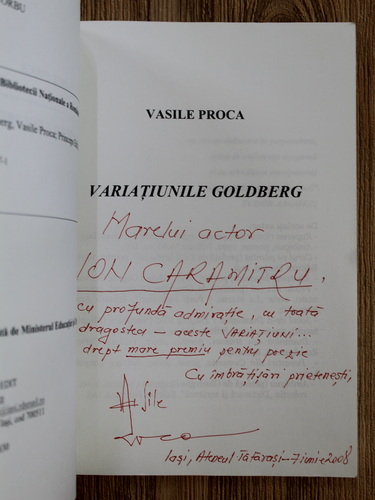 ORBU
Bibliotecii Naționale a
berg, Vasile Proca; Princeps
tă de Ministerul Educației
EDIT
Iași, cod 700511
VASILE PROCA
VARIAȚIUNILE GOLDBERG
Marelui actor
ION CARAMITRU,
cu profundă admirație, cu toată
dragostea – aceste VARIAȚIUNI...
drept mare premiu pentru poezie
Cu îmbrățișări prietenești,
Vasile
Proca
Iași, Ateneul Tătărași – 7 iunie 2008